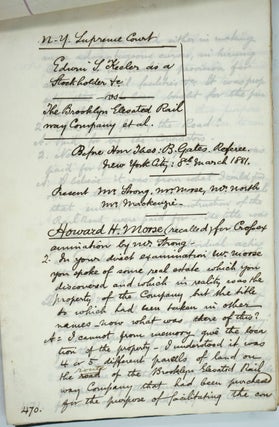 N.Y. Supreme Court
Edwin S. Keeler as a
Stockholder &c
vs
The Brooklyn Elevated Rail
way Company et al.
Before Hon Theo: B. Gates, Referee.
New York City: 8th March 1881.
Present Mr Strong, Mr Morse, Mr North
Mr Mackenzie.
Howard H. Morse (recalled) for Crossex
amination by Mr Strong.
2. In your direct examination Mr Morse
you spoke of some real estate which you
discovered and which in reality was the
property of the Company but the title
to which had been taken in other
names. now what was there of this?
A: I cannot from memory give the loca
tion of the property. I understood it was
4 or 5 different parcels of land on
the road of the Brooklyn Elevated Rail
way Company that had been purchased
for the purpose of facilitating the con
470.